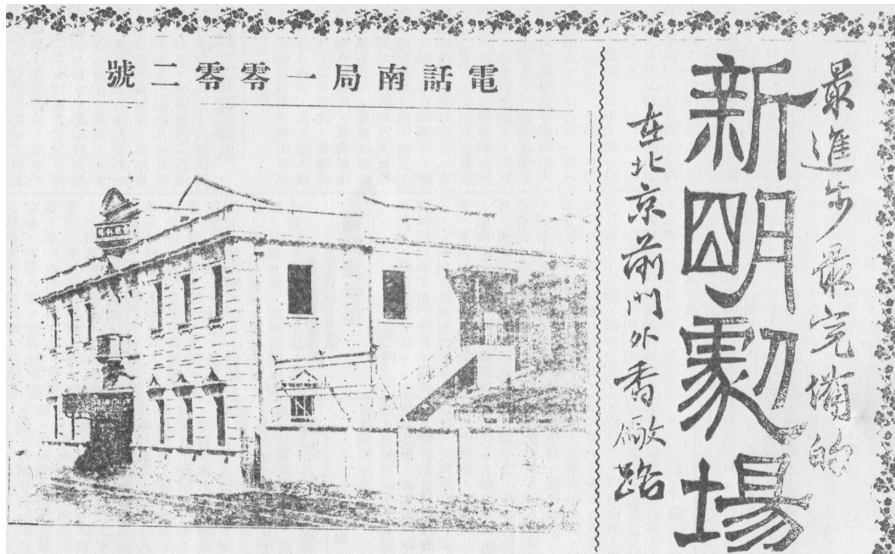 最進步最完備的
新明劇場
在北京前門外香廠路
電話南局一零零二號